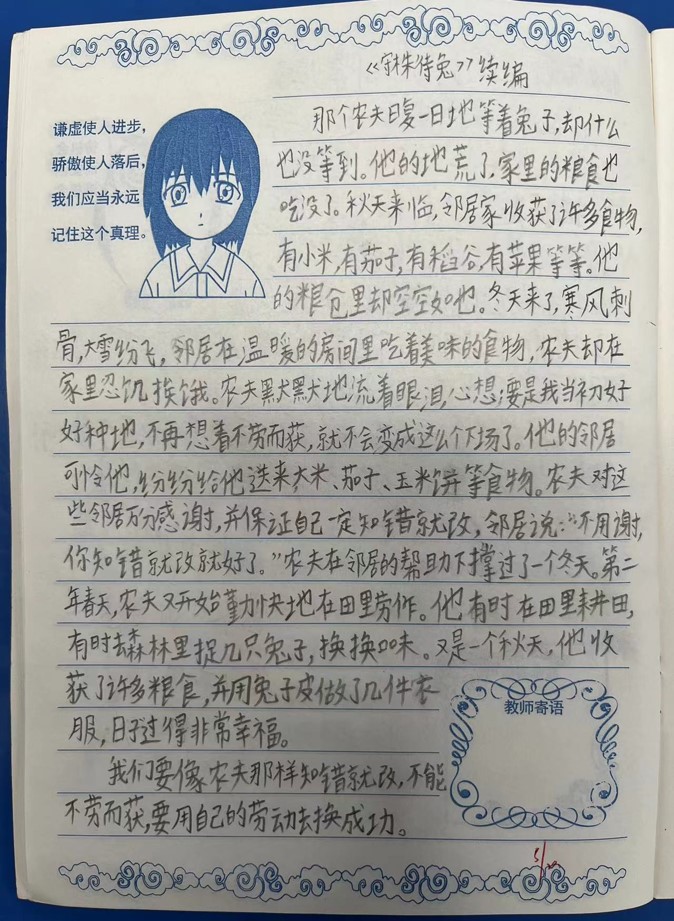 《守株待兔》续编
谦虚使人进步，
骄傲使人落后，
我们应当永远
记住这个真理。
那个农夫日复一日地等着兔子，却什么
也没等到。他的地荒了，家里的粮食也
吃没了。秋天来临，邻居家收获了许多食物，
有小米，有茄子，有稻谷，有苹果等等。他
的粮仓里却空空如也。冬天来了，寒风刺
骨，大雪纷飞，邻居在温暖的房间里吃着美味的食物，农夫却在
家里忍饥挨饿。农夫默默地流着眼泪，心想：要是我当初好
好种地，不再想着不劳而获，就不会变成这么个下场了。他的邻居
可怜他，纷纷给他送来大米、茄子、玉米饼等食物。农夫对这
些邻居万分感谢，并保证自己一定知错就改，邻居说：“不用谢，
你知错就改就好了。”农夫在邻居的帮助下撑过了一个冬天。第二
年春天，农夫又开始勤快地在田里劳作。他有时在田里耕田，
有时去森林里捉几只兔子，换换口味。又是一个秋天，他收
获了许多粮食，并用兔子皮做了几件衣
服，日子过得非常幸福。
我们要像农夫那样知错就改，不能
不劳而获，要用自己的劳动去换成功。
教师寄语